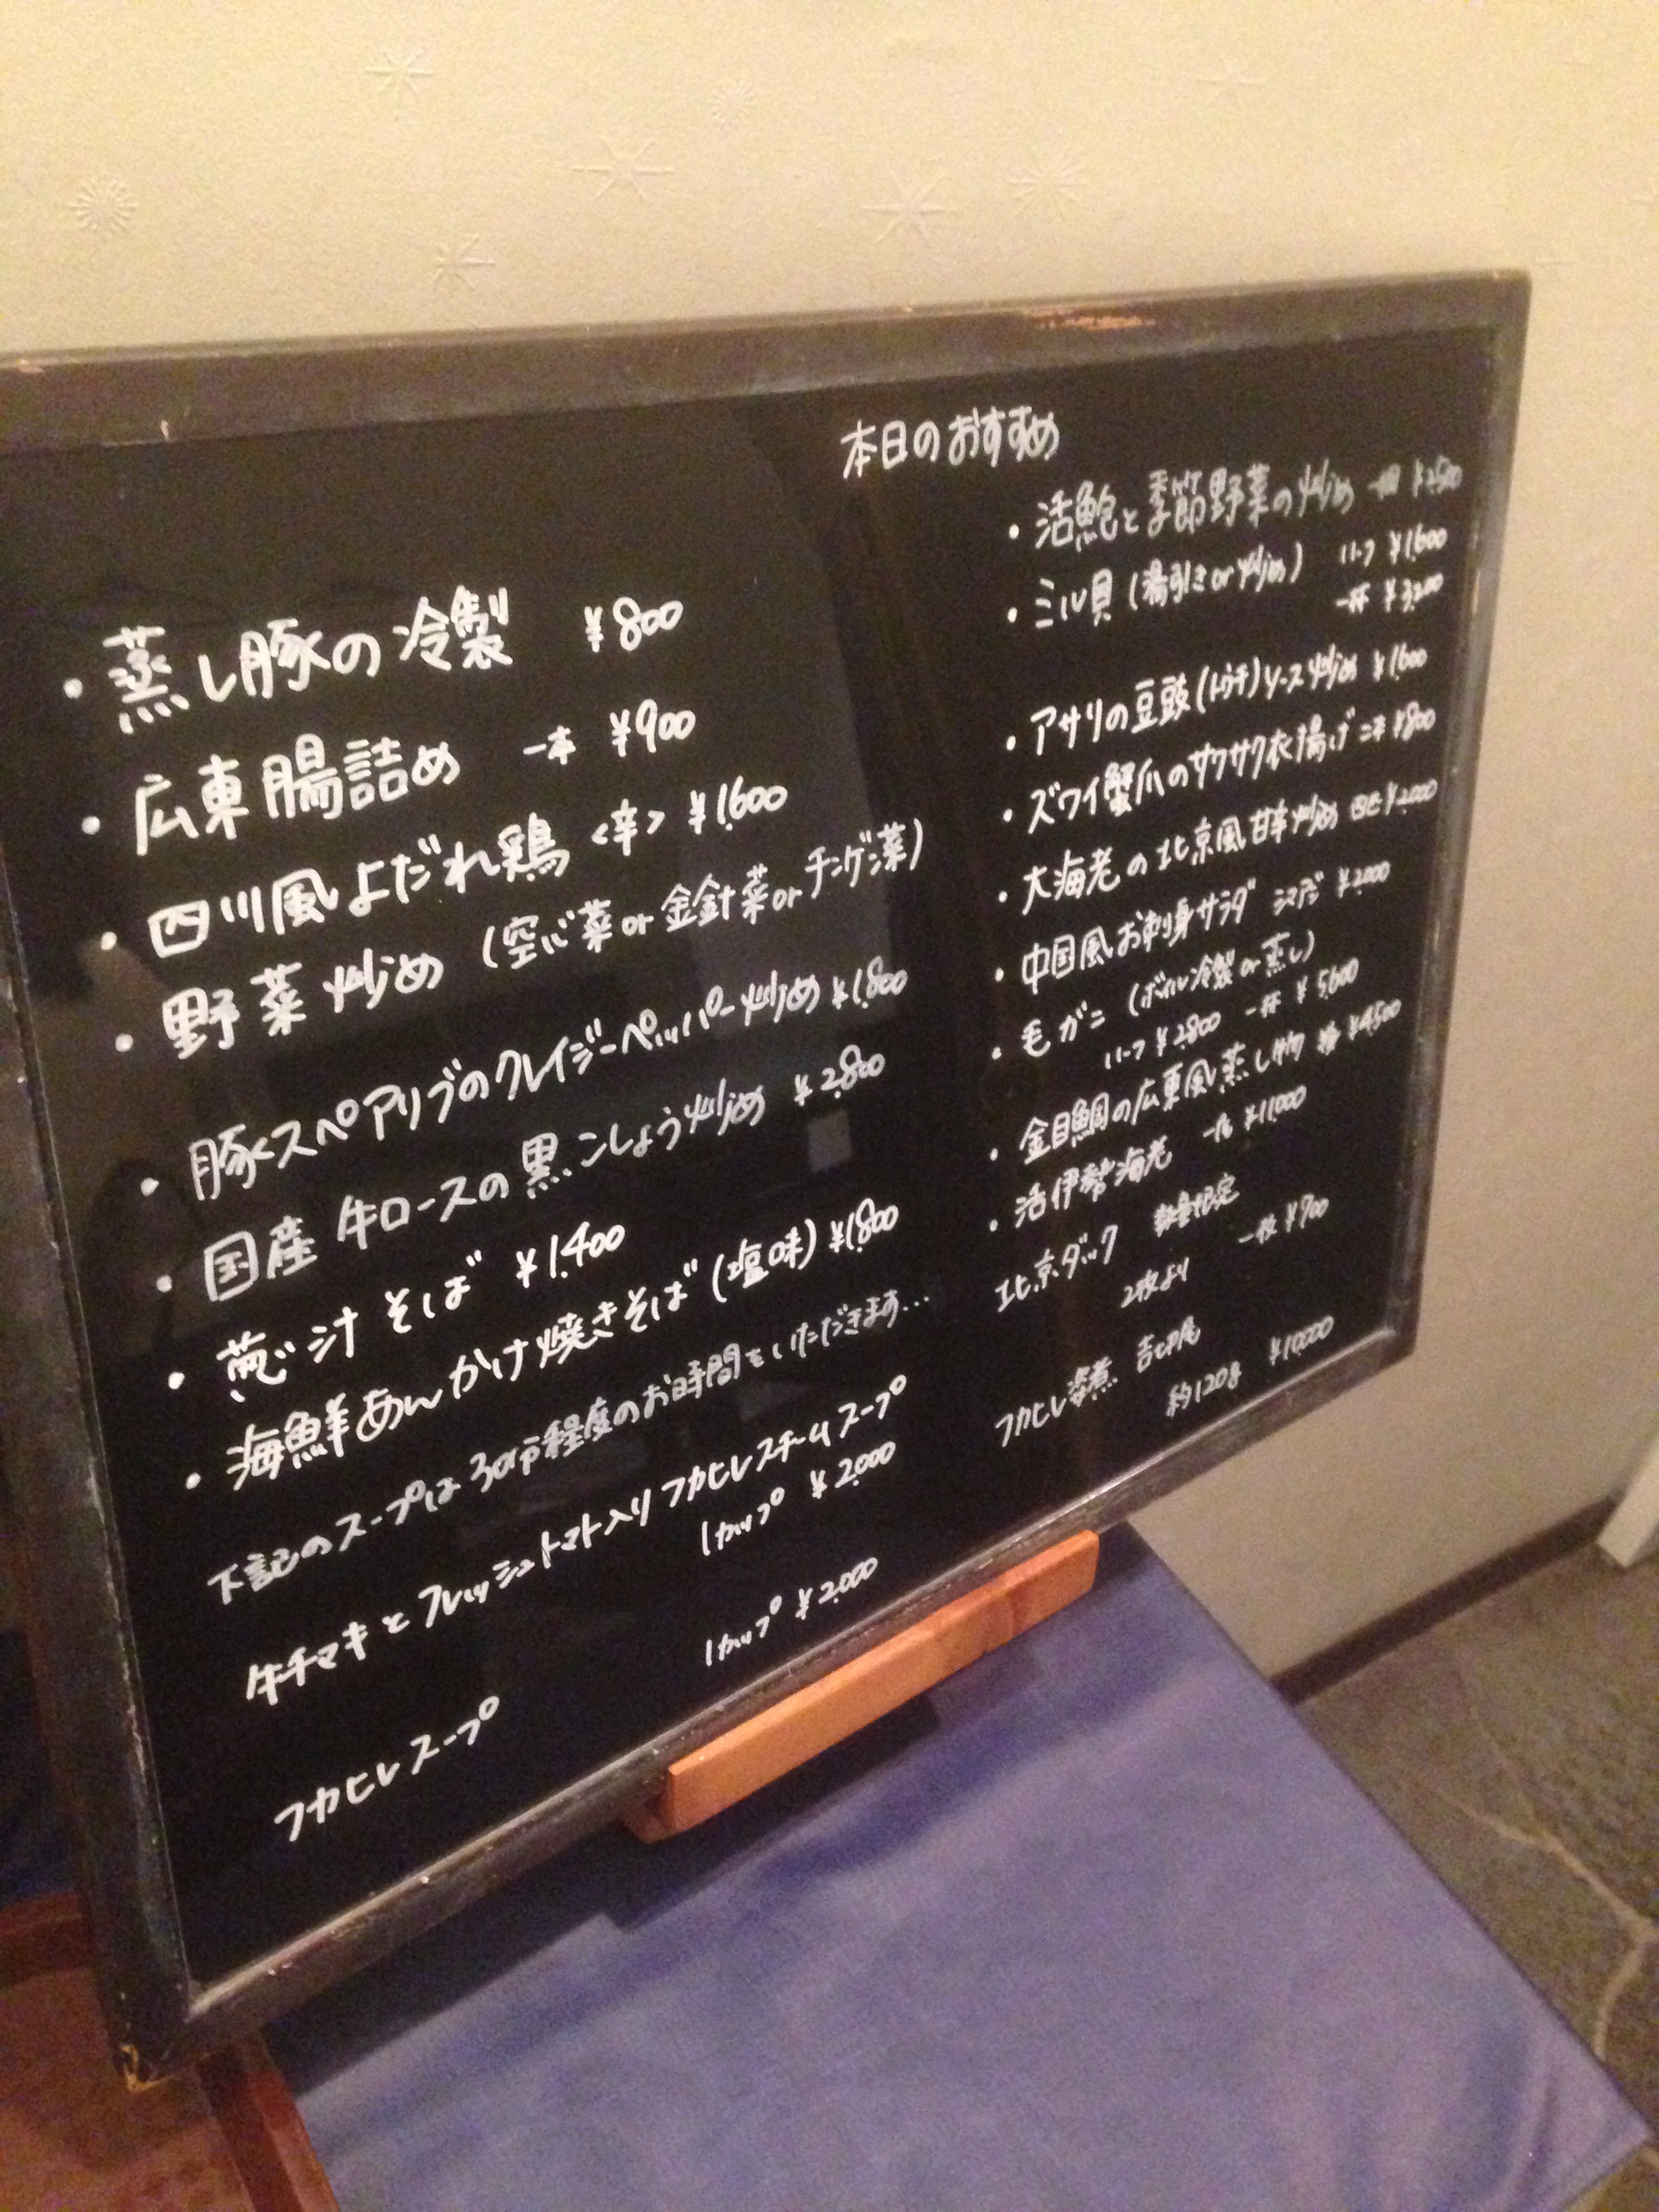 本日のおすすめ
・蒸し豚の冷製 ¥800
・広東腸詰め 一本 ¥900
・四川風よだれ鶏 <辛> ¥1,600
・野菜炒め (空心菜or金針菜orチンゲン菜)
・豚スペアリブのクレイジーペッパー炒め ¥1,800
・国産牛ロースの黒こしょう炒め ¥2,800
・葱汁そば ¥1,400
・海鮮あんかけ焼きそば(塩味) ¥1,800
下記のスープは30分程度のお時間をいただきます...
牛チマキとフレッシュトマト入りフカヒレスチームスープ
1カップ ¥2,000
フカヒレスープ 1カップ ¥2,000
・活鮑と季節野菜の炒め 一個 ¥2,500
・ミル貝(湯引きor炒め) ハーフ ¥1,600
一杯 ¥3,200
・アサリの豆豉(トウチ)ソース炒め ¥1,600
・ズワイ蟹爪のサクサク衣揚げ 二本 ¥800
・大海老の北京風甘辛炒め 四匹 ¥2,000
・中国風お刺身サラダ シマアジ ¥2,000
・毛ガニ (ボイル冷製or蒸し)
ハーフ ¥2,800 一杯 ¥5,600
・金目鯛の広東風蒸し物 ¥4,500
・活伊勢海老 ¥11,000
北京ダック 数量限定
2枚より 一枚 ¥700
フカヒレ姿煮 吉切尾
約120g ¥10,000